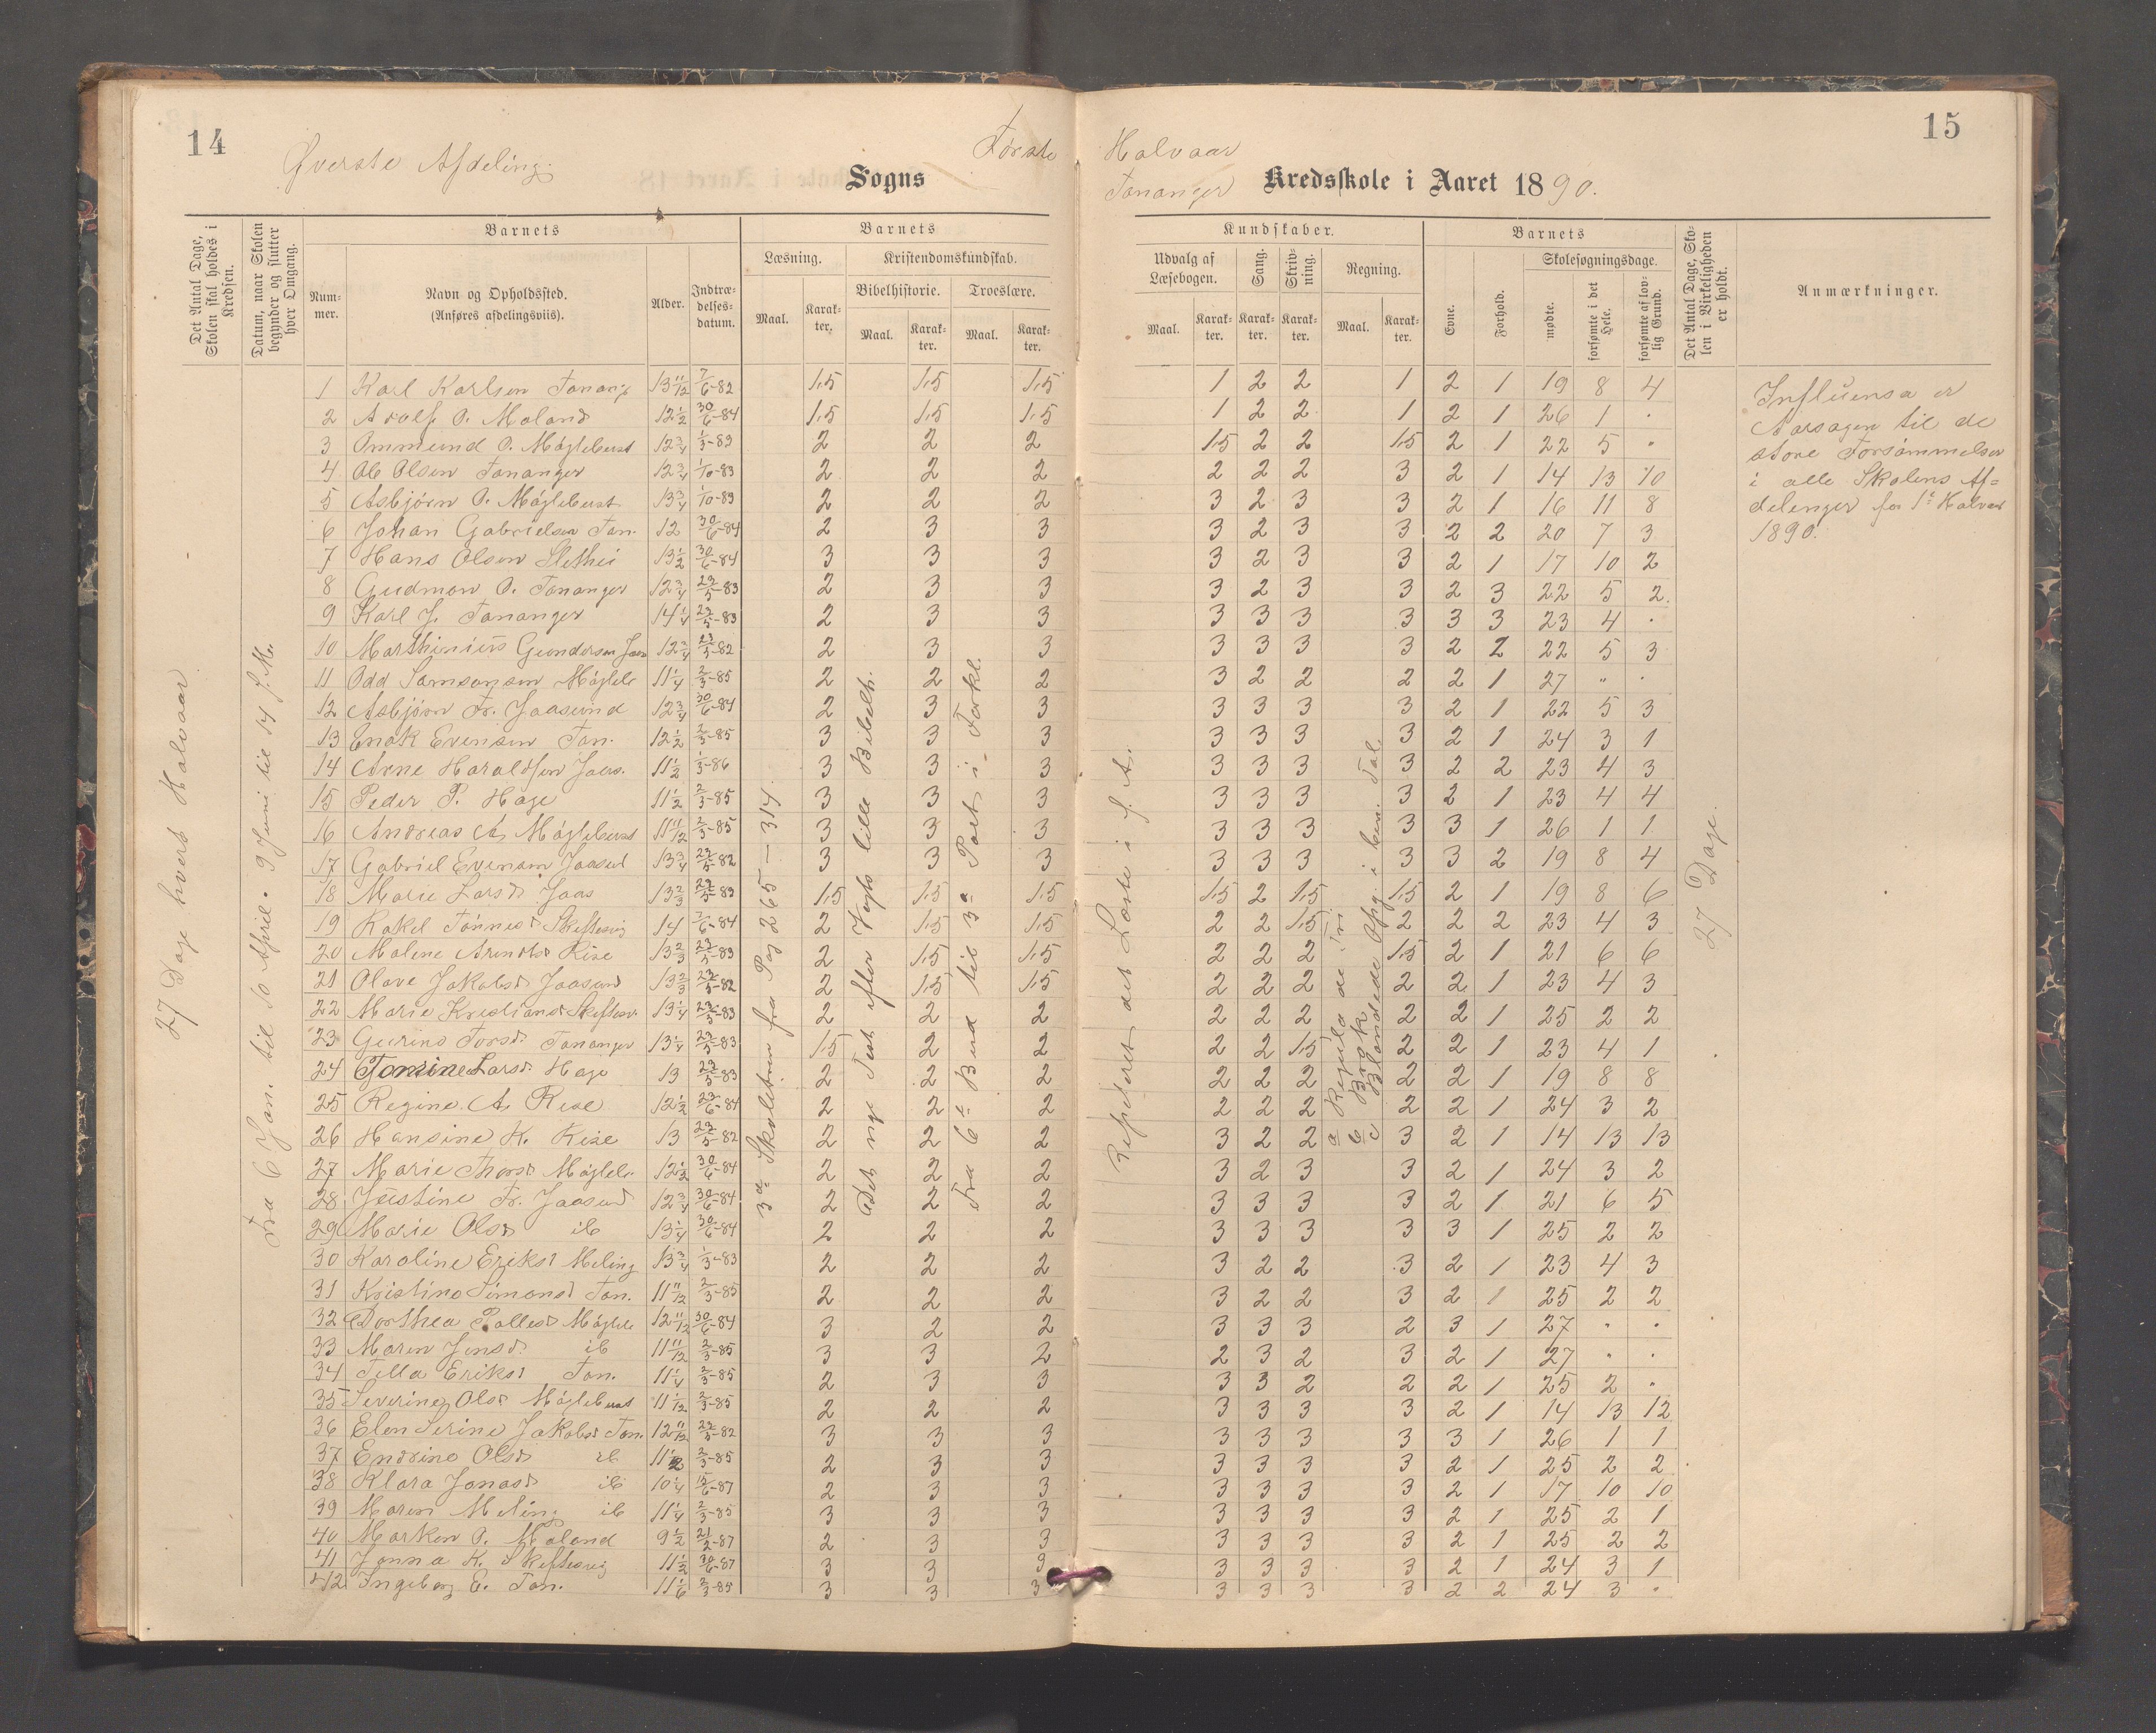 14
Øverste Afdeling.
Første
Sogns
Halvaar
15
Tananger Kredsskole i Aaret 1890.
Det Antal Dage, Skolen skal holdes i Kredsen.
Datum, naar Skolen begynder og slutter hver Omgang.
Barnets
Barnets
Kundskaber.
Barnets
Det Antal Dage, Skolen i Virkeligheden er holdt.
Anmærkninger.
Nummer.
Navn og Opholdssted. (Anføres afdelingsviis).
Alder.
Indtrædelses-datum.
Læsning.
Kristendomskundskab.
Bibelhistorie.
Troeslære.
Maal.
Karakter.
Maal.
Karakter.
Maal.
Karakter.
Udvalg af Læsebogen.
Sang.
Skrivning.
Regning.
Maal.
Karakter.
Karakter.
Karakter.
Maal.
Karakter.
Evne.
Forhold.
Skolesøgningsdage.
mødte.
forsømte i det Hele.
forsømte af lovlig Grund.
27 Dage hvert Halvaar
Fra 6 Jan. til 10 April. 9 Juni til 14 J. M.
3d Skoletrin fra Pag 265 – 314.
Det nye Test. efter Vogts lille Bibelh.
Fra 6te Bud til 3die Part i Forkl.
Repeteret det Læste i f. A.
a Regula de tri
b Brøk
c Blandede Opg. i ben. Tal.
27 Dage.
Influensa er
Aarsagen til de
store Forsømmelser
i alle Skolens Af=
delinger for 1te Halvaar
1890.
1 Karl Karlsen Tanang 13 11/12 7/6-82 1,5 1,5 1,5 1 2 2 1 2 1 19 8 4
2 Adolf O. Moland 12 1/2 30/6-84 1,5 1,5 1,5 1 2 2 1 2 1 26 1 .
3 Ommund O. Møglebust 12 3/4 1/3-83 2 2 2 1,5 2 2 1,5 2 1 22 5 .
4 Ob Olsen Tananger 12 3/4 1/10-83 2 2 2 2 2 2 3 2 1 14 13 10
5 Asbjørn O. Møglebust 13 3/4 1/10-83 2 2 2 3 2 3 3 2 1 16 11 8
6 Johan Gabrielsen Tan. 12 30/6-84 2 3 3 3 2 3 3 2 2 20 7 3
7 Hans Olsen Slethei 13 1/2 30/6-84 3 3 3 3 2 3 3 2 1 17 10 2
8 Gudmon O. Tananger 12 3/4 23/5-83 2 3 3 3 2 3 3 2 3 22 5 2
9 Karl J. Tananger 14 1/4 23/5-83 2 3 3 3 3 3 3 3 3 23 4 .
10 Marthinius Gundersen Jaas 12 3/4 23/5-82 2 3 3 3 3 3 3 2 2 22 5 3
11 Odd Samsonsen Møgleb 11 1/4 2/3-85 2 2 2 3 2 2 2 2 1 27 " .
12 Asbjørn Fr. Jaasund 12 3/4 30/6-84 2 3 3 3 3 3 3 2 1 22 5 3
13 Enok Evensen Tan. 12 1/2 2/3-85 3 3 3 3 3 3 3 2 1 24 3 1
14 Arne Haraldsen Jaas. 11 1/2 1/3-86 3 3 3 3 3 3 3 2 2 23 4 3
15 Peder P. Hage 11 1/2 2/3-85 3 3 3 3 3 3 3 2 1 23 4 4
16 Andreas A. Møglebust 11 11/12 2/3-85 3 3 3 3 3 3 3 3 1 26 1 1
17 Gabriel Evensen Jaasud 13 3/4 23/5-82 3 3 3 3 3 3 3 3 2 19 8 4
18 Marie Larsd. Jaas 13 2/3 23/5-83 1,5 1,5 1,5 1,5 2 1,5 1,5 2 1 19 8 6
19 Rakel Tønnesd. Skeftesvig 14 7/6-84 2 1,5 1,5 2 2 1,5 2 2 2 23 4 3
20 Malene Arentsd. Rise 13 2/3 23/5-83 2 1,5 1,5 2 2 2 1,5 2 1 21 6 6
21 Olave Jakobsd. Jaasund 13 2/3 23/5-82 2 1,5 1,5 2 2 2 2 2 1 23 4 3
22 Marie Kristiansd. Skeftesv. 13 1/4 23/5-83 2 2 2 2 2 2 2 2 1 25 2 2
23 Gurine Torsd. Tananger 13 1/4 23/5-83 1,5 2 2 2 2 1,5 2 2 1 23 4 1
24 Tomine Larsd. Hage 13 23/5-83 2 2 2 2 2 2 2 2 1 19 8 8
25 Regine A. Rise 12 1/2 23/6-84 2 2 2 2 2 2 2 2 1 24 3 2
26 Hansine K. Rise 13 23/5-82 2 2 2 3 2 2 3 2 1 14 13 13
27 Marie Thorsd. Møgleb. 12 1/2 30/6-84 2 2 2 3 2 3 3 2 1 24 3 2
28 Justine Fr. Jaasud 12 3/4 30/6-84 2 2 2 3 3 3 3 2 1 21 6 5
29 Marie Olsd. ib 13 1/4 30/6-84 2 2 2 3 3 3 3 3 1 25 2 2
30 Karoline Eriksd Meling 13 3/4 1/3-83 2 2 2 3 2 2 3 2 1 23 4 3
31 Kristine Simonsd Tan. 11 11/12 2/3-85 2 2 2 3 2 2 3 2 1 25 2 2
32 Dorthea Pallesd. Møgleb 12 11/12 30/6-84 3 2 2 3 3 3 2 3 1 27 . .
33 Maren Jensd. ib 11 11/12 2/3-85 3 3 2 2 3 2 3 2 1 27 . .
34 Tella Eriksd Tan. 11 1/4 2/3-85 2 3 3 3 3 2 2 2 1 25 2 .
35 Severine Olsd Møglebust 11 1/12 2/3-85 2 2 2 3 3 3 3 2 1 14 13 12
36 Elen Serine Jakobsd Tan. 12 11/12 23/5-82 3 3 3 3 3 3 3 3 1 26 1 1
37 Endrine Olsd ib 11 1/2 2/3-85 2 3 3 3 3 3 3 2 1 25 2 2
38 Klara Jonasd ib 10 1/4 15/6-87 2 3 3 3 3 3 3 2 1 17 10 10
39 Maren Meling ib 11 1/4 2/3-85 3 3 3 3 3 3 3 2 1 25 2 1
40 Marken O. Moland 9 1/2 21/2-87 2 3 3 3 3 3 3 2 1 25 2 2
41 Janna K. Skeftesvig 11 1/2 30/6-87 3 3 3 3 3 3 3 2 1 24 3 1
42 Ingeborg E. Tan. 11 1/6 2/3-85 3 3 3 3 3 3 3 2 2 24 3 .